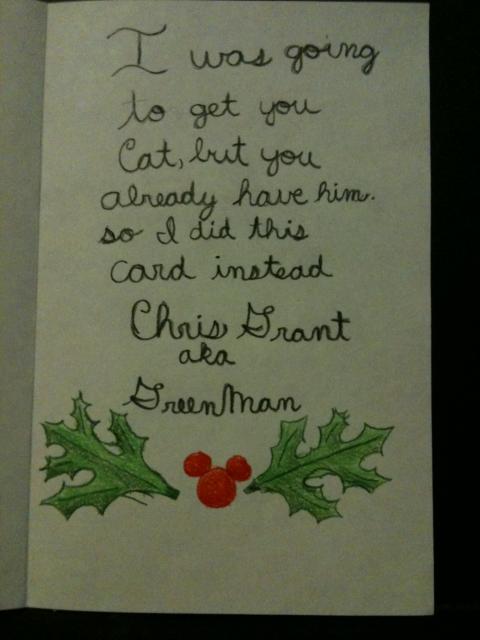 I was going
to get you
Cat, but you
already have him.
so I did this
card instead
Chris Grant
aka
GreenMan